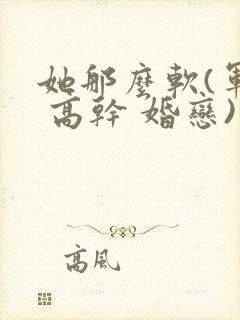 她那麼軟(軍
高幹 婚戀)
高風